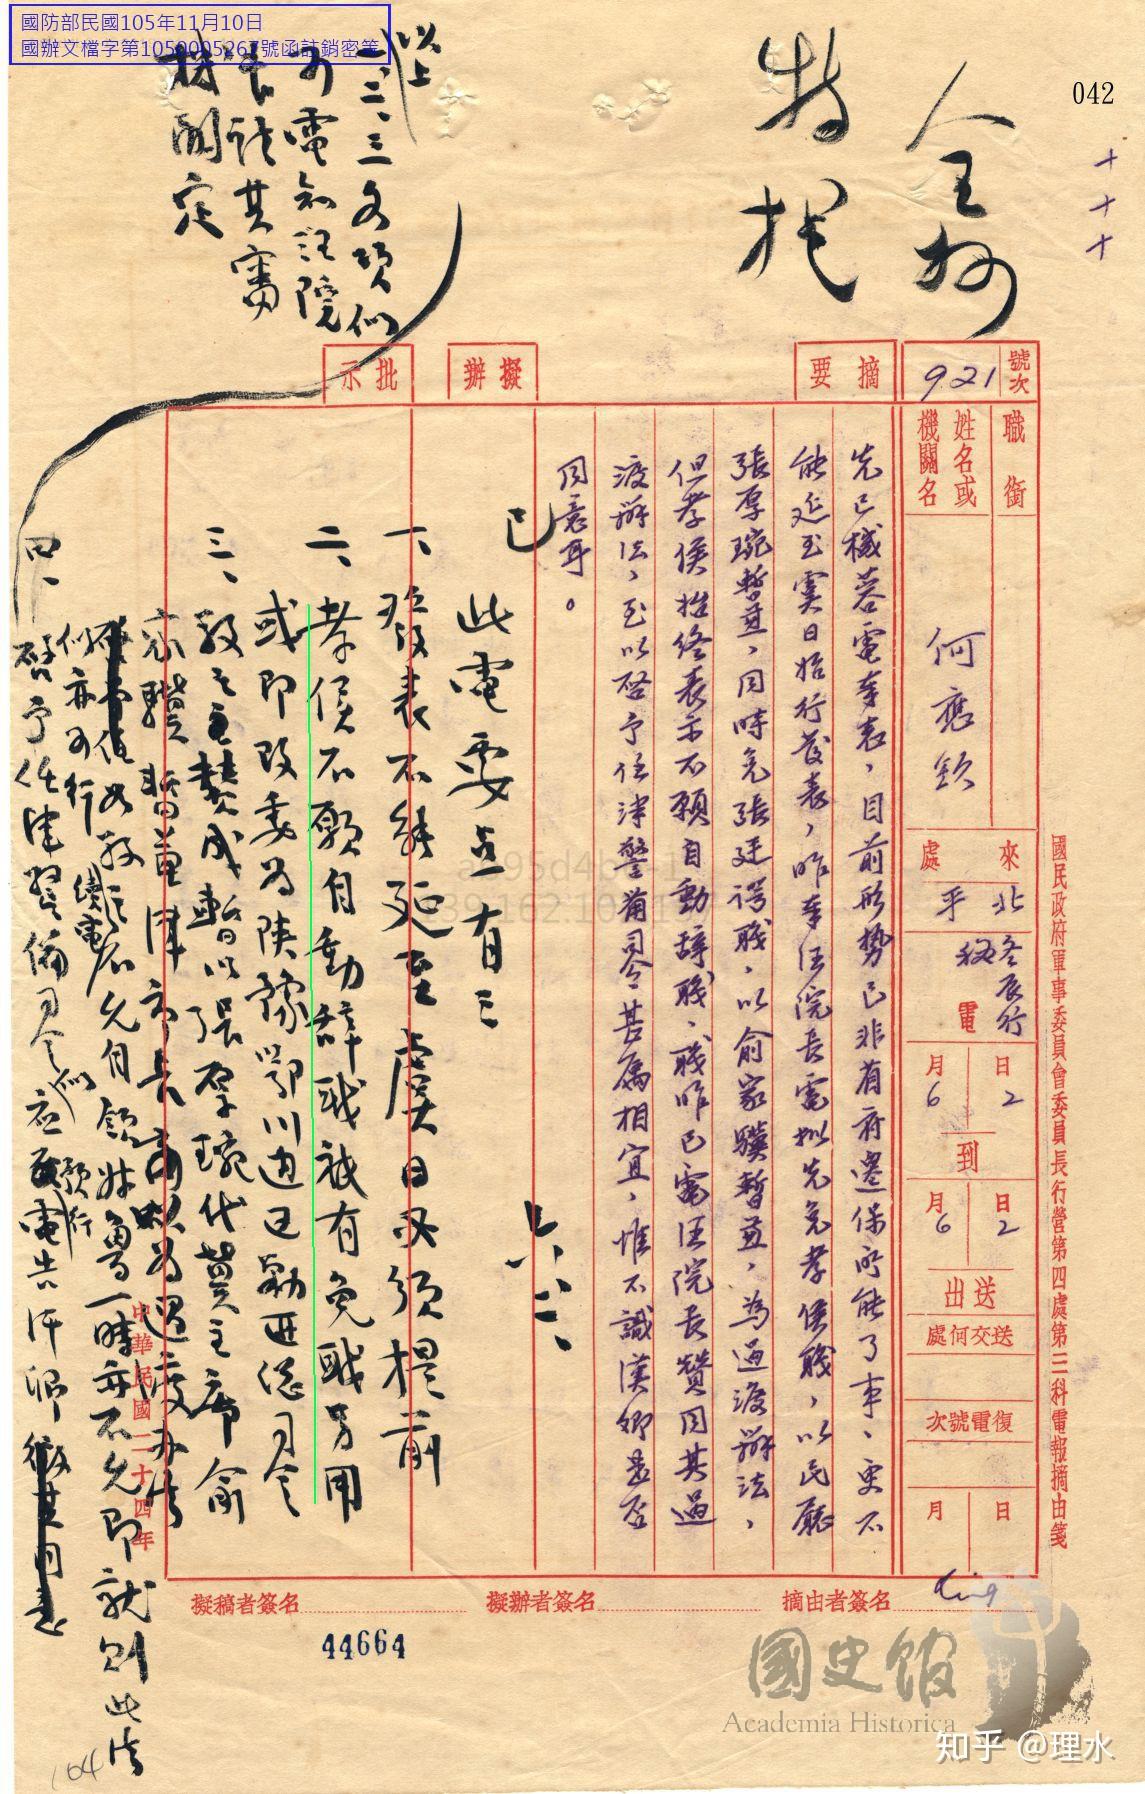 國防部民國105年11月10日
國辦文檔字第1050005267號函註銷密等
042
特提
以上
一、二、三各項似
可電知汪院
長請其審
核閱定
號次
921
摘要
擬辦
批示
職銜
姓名或機關名
何應欽
來處
北平
冬辰行秘電
6月2日
到
6月2日
送出
送交何處
復電號次
月 日
先已檝蓉電奉表,目前形勢已非省府遷保所能了事,更不
能延至寘日始行發表,昨奉汪院長電擬先免孝侯職,以民廳
張厚琬暫兼,同時免張廷諤職,以俞家驥暫兼,為過渡辦法,
但孝侯始終表示不願自動辭職,職昨已電汪院長贊同其過
渡辦法,至以啓予任津警備司令甚為相宜,惟不識漢卿是否
同意耳。
已
此電要点有三
一、發表不能延至虞日必須提前
二、孝侯不願自動辭職祇有免職另用
或即改委為陝豫鄂川邊區剿匪總司令
三、敬之主贊成暫以張厚琬代冀主席俞
家驥暫兼津市長為過渡办法
四、啓予任津警備司令似應電告汗卿
國民政府軍事委員會委員長行營第四處第三科電報摘由箋
中華民國二十四年
擬稿者簽名
擬辦者簽名
摘由者簽名
44664
164
國史館
Academia Historica
知乎 @理水